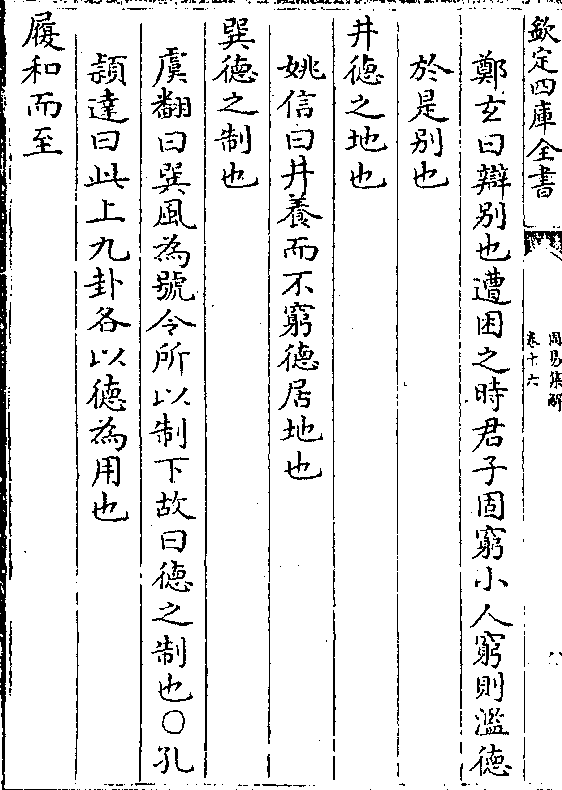 欽定四庫全書
周易集解
卷十六
八
鄭玄曰辯别也遭困之時君子固窮小人窮則濫德
於是别也
井德之地也
姚信曰井養而不窮德居地也
巽德之制也
虞翻曰巽風為號令所以制下故曰德之制也○孔
頴達曰此上九卦各以德為用也
履和而至